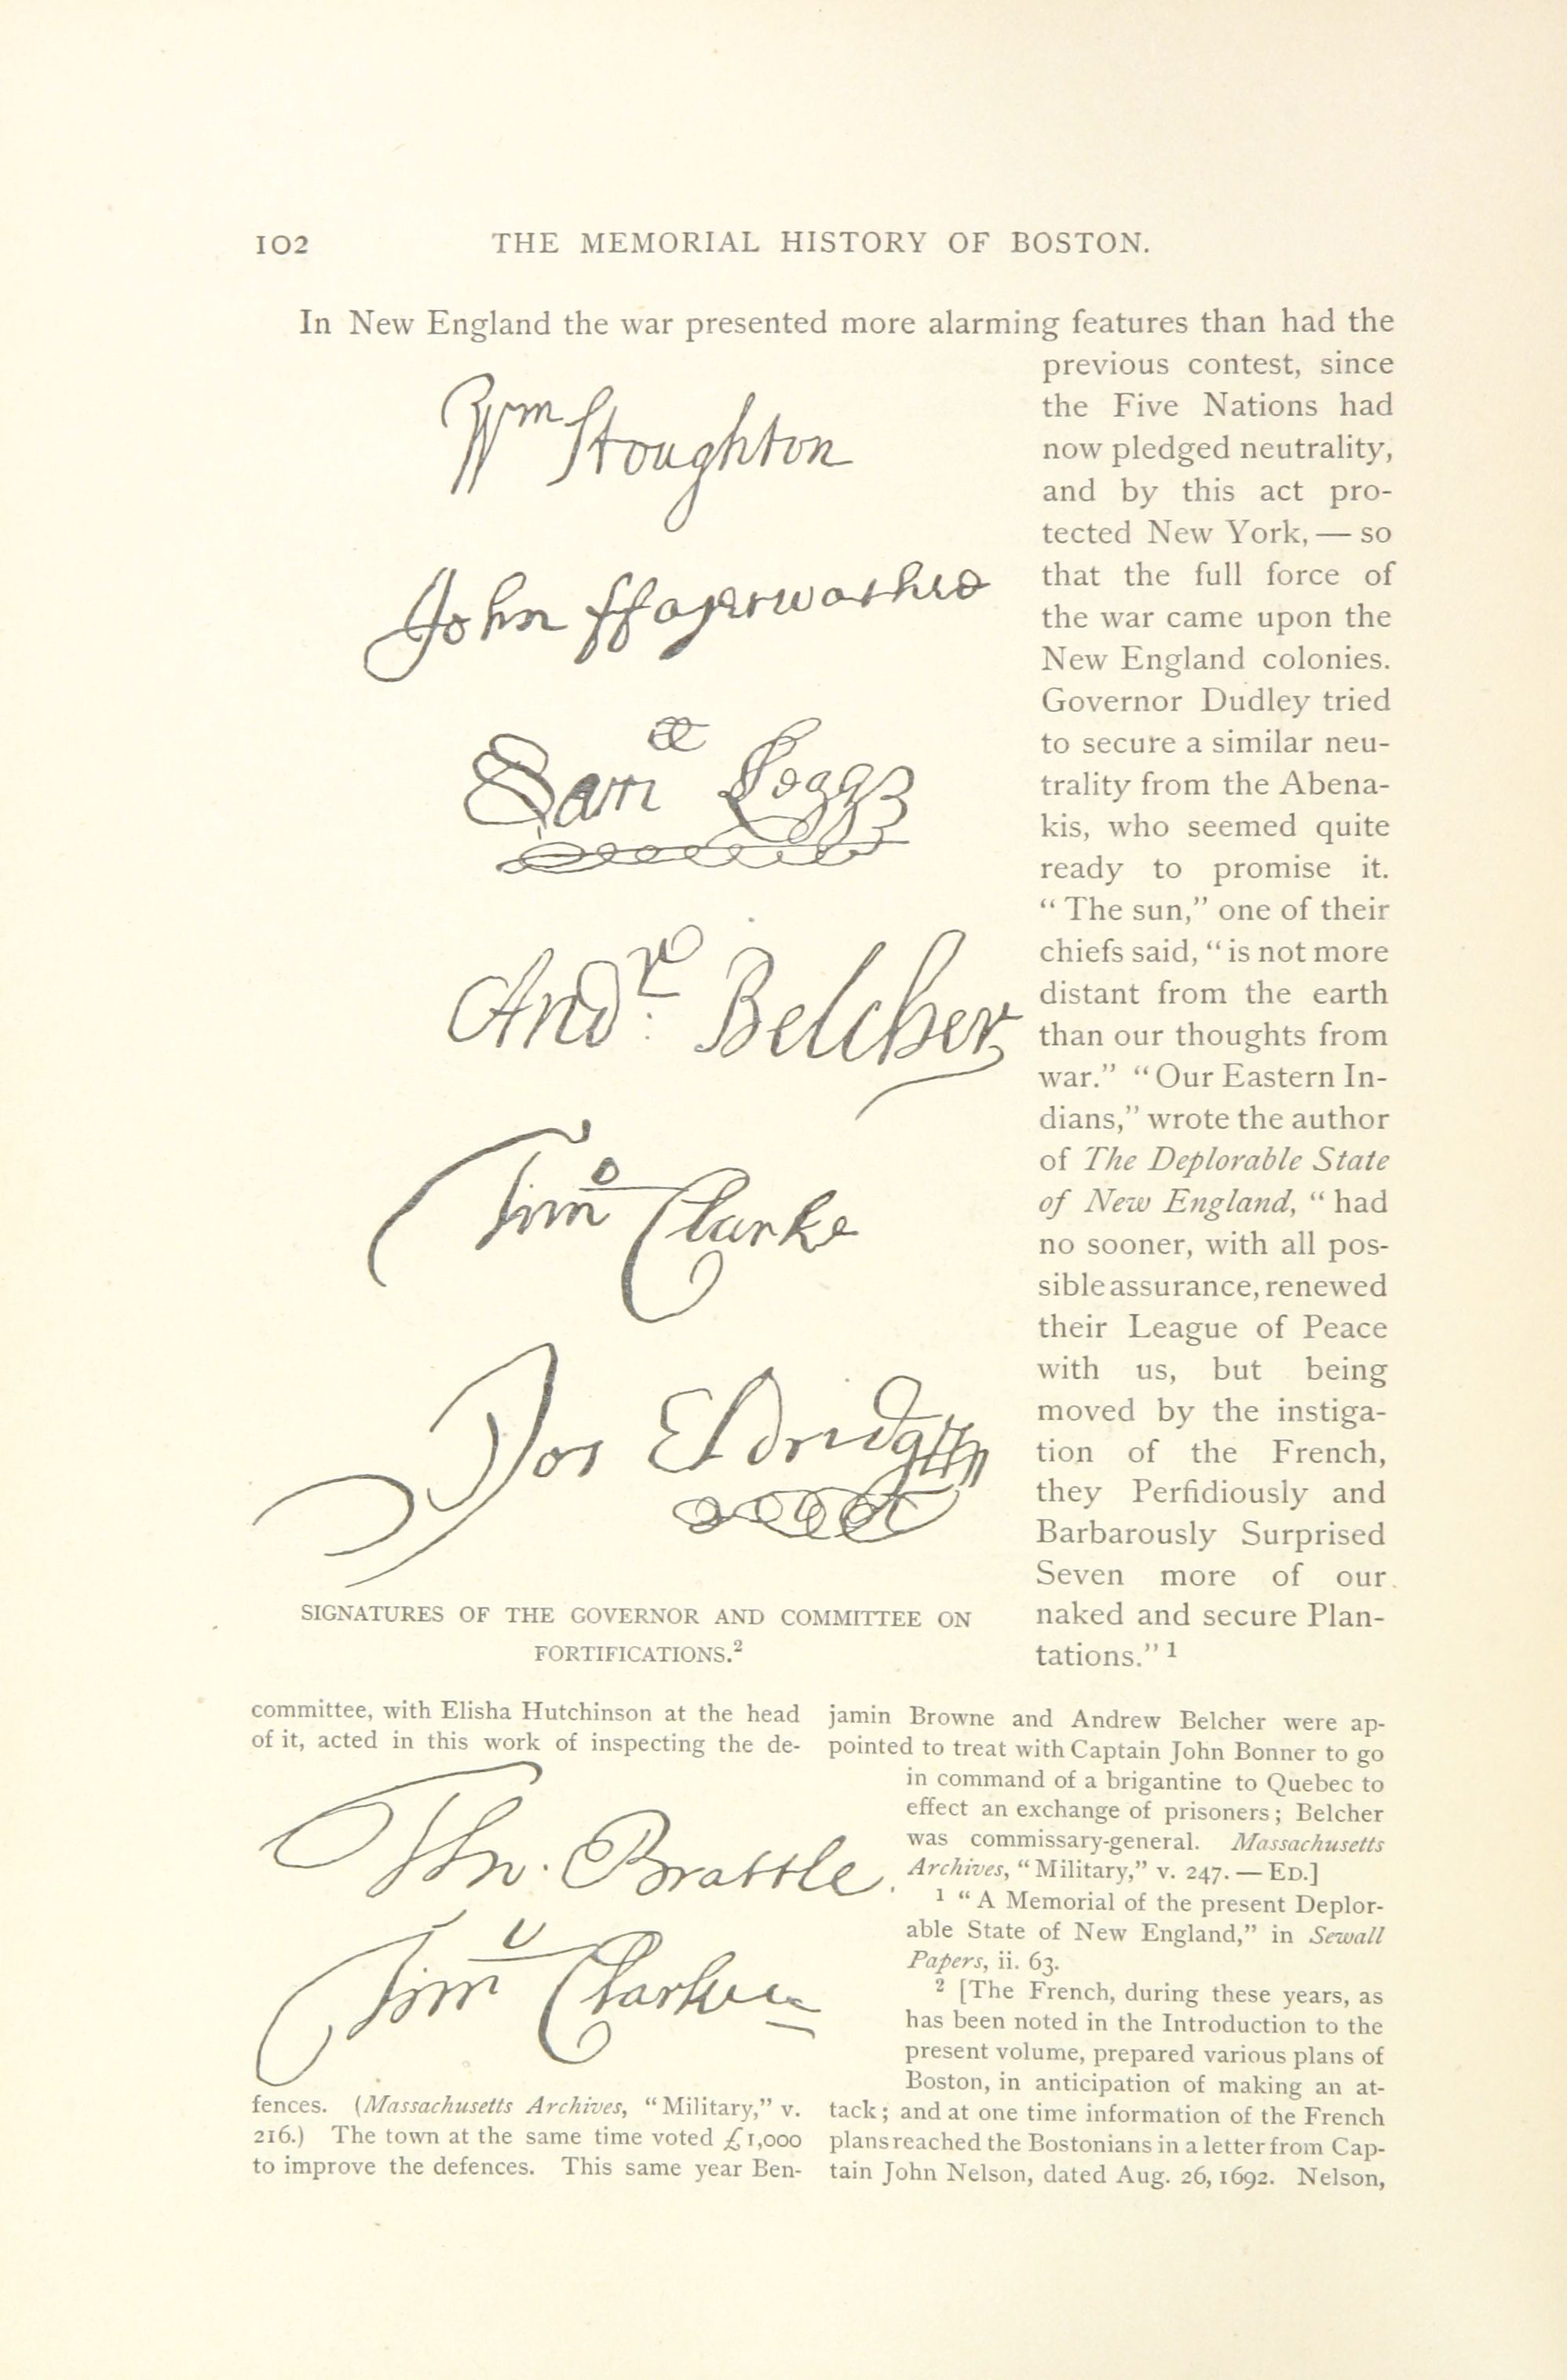 102
THE MEMORIAL HISTORY OF BOSTON.
In New England the war presented more alarming features than had the
previous contest, since
the Five Nations had
now pledged neutrality,
and by this act pro-
tected New York, — so
that the full force of
the war came upon the
New England colonies.
Governor Dudley tried
to secure a similar neu-
trality from the Abena-
kis, who seemed quite
ready to promise it.
“ The sun,” one of their
chiefs said, “ is not more
distant from the earth
than our thoughts from
war.” “ Our Eastern In-
dians,” wrote the author
of The Deplorable State
of New England, “ had
no sooner, with all pos-
sible assurance, renewed
their League of Peace
with us, but being
moved by the instiga-
tion of the French,
they Perfidiously and
Barbarously Surprised
Seven more of our
naked and secure Plan-
tations.” 1
Wm Stoughton
John ffayerwather
Sam Legg
Andr. Belcher
Timo Clarke
Jos Eldridg
SIGNATURES OF THE GOVERNOR AND COMMITTEE ON
FORTIFICATIONS.2
committee, with Elisha Hutchinson at the head
of it, acted in this work of inspecting the de-
Tho. Brattle.
Tim Clarke
fences. (Massachusetts Archives, “ Military,” v.
216.) The town at the same time voted £1,000
to improve the defences. This same year Ben-
jamin Browne and Andrew Belcher were ap-
pointed to treat with Captain John Bonner to go
in command of a brigantine to Quebec to
effect an exchange of prisoners ; Belcher
was commissary-general. Massachusetts
Archives, “ Military,” v. 247. — ED.]
1 “ A Memorial of the present Deplor-
able State of New England,” in Sewall
Papers, ii. 63.
2 [The French, during these years, as
has been noted in the Introduction to the
present volume, prepared various plans of
Boston, in anticipation of making an at-
tack ; and at one time information of the French
plans reached the Bostonians in a letter from Cap-
tain John Nelson, dated Aug. 26, 1692. Nelson,